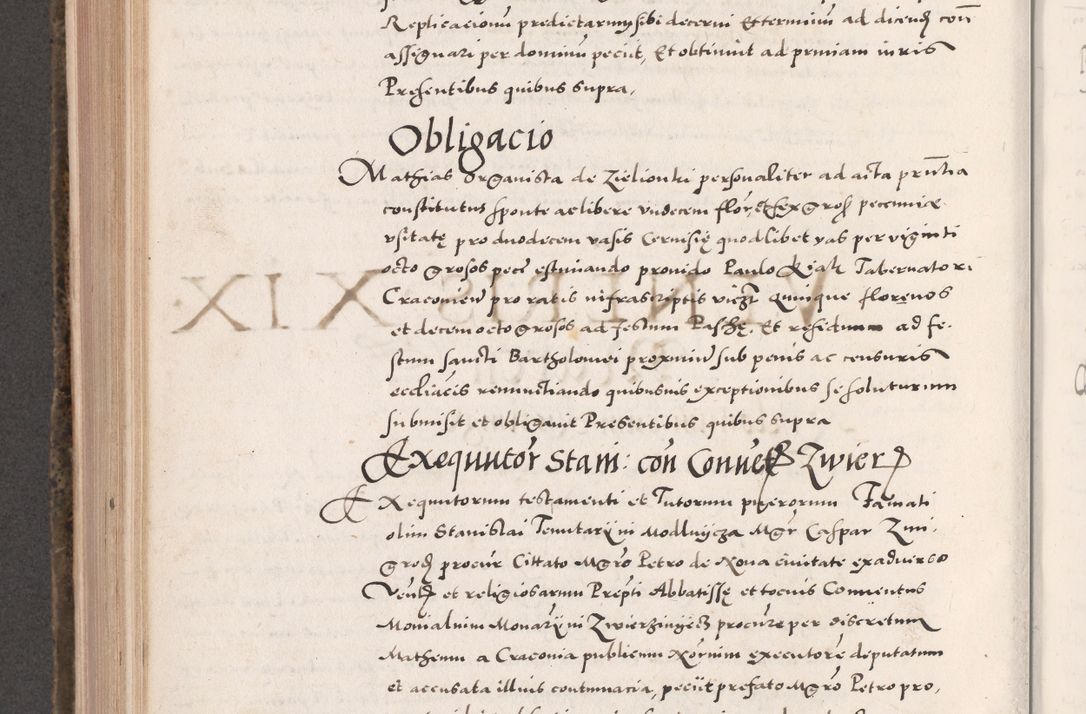 Replicacionum predictarum sibi decerni Et terminum ad dicend con
assignari per dominum peciit, Et obtinuit ad primam iuris
Presentibus quibus supra.
Obligacio
Mathias organista de Zielionki personaliter ad acta prntia
constitutus sponte ac libere vndecem flor, et sex gross pecuniae
vsitatę pro duodecem vasis Cervisię quodlibet vas per viginti
octo grosos pece estimando provido Paulo Tabernatori
Cracovien pro ratis infrascriptis vidzt quinque florenos
et decem octo grosos ad festum Paschę. Et residuum ad fe-
stum sancti Bartholomei proximum sub penis ac censuris
ecclīacis renunctiando quibusuis exceptionibus se soluturum
submisit et obligauit Presentibus quibus supra
Exequutor Stani: con Conuet Zwier
Exequutorum testamenti et Tutorum puerorum Famati
olim Stanislai Tenutarÿ in Modlnycza Mgr Caspar Zni-
grod procur Cittato Mgro Petro de Noua ciuitate ex aduerso
Vend et religiosarum Prepti Abbatissę et tocius Conuentus
Monialium Monarÿ in Zwierzinyecz procure per discretum
Matheum a Cracouia publicum Notrium executore deputatum
et accusata illius contumacia, peciit prefato Mgro Petro pro,